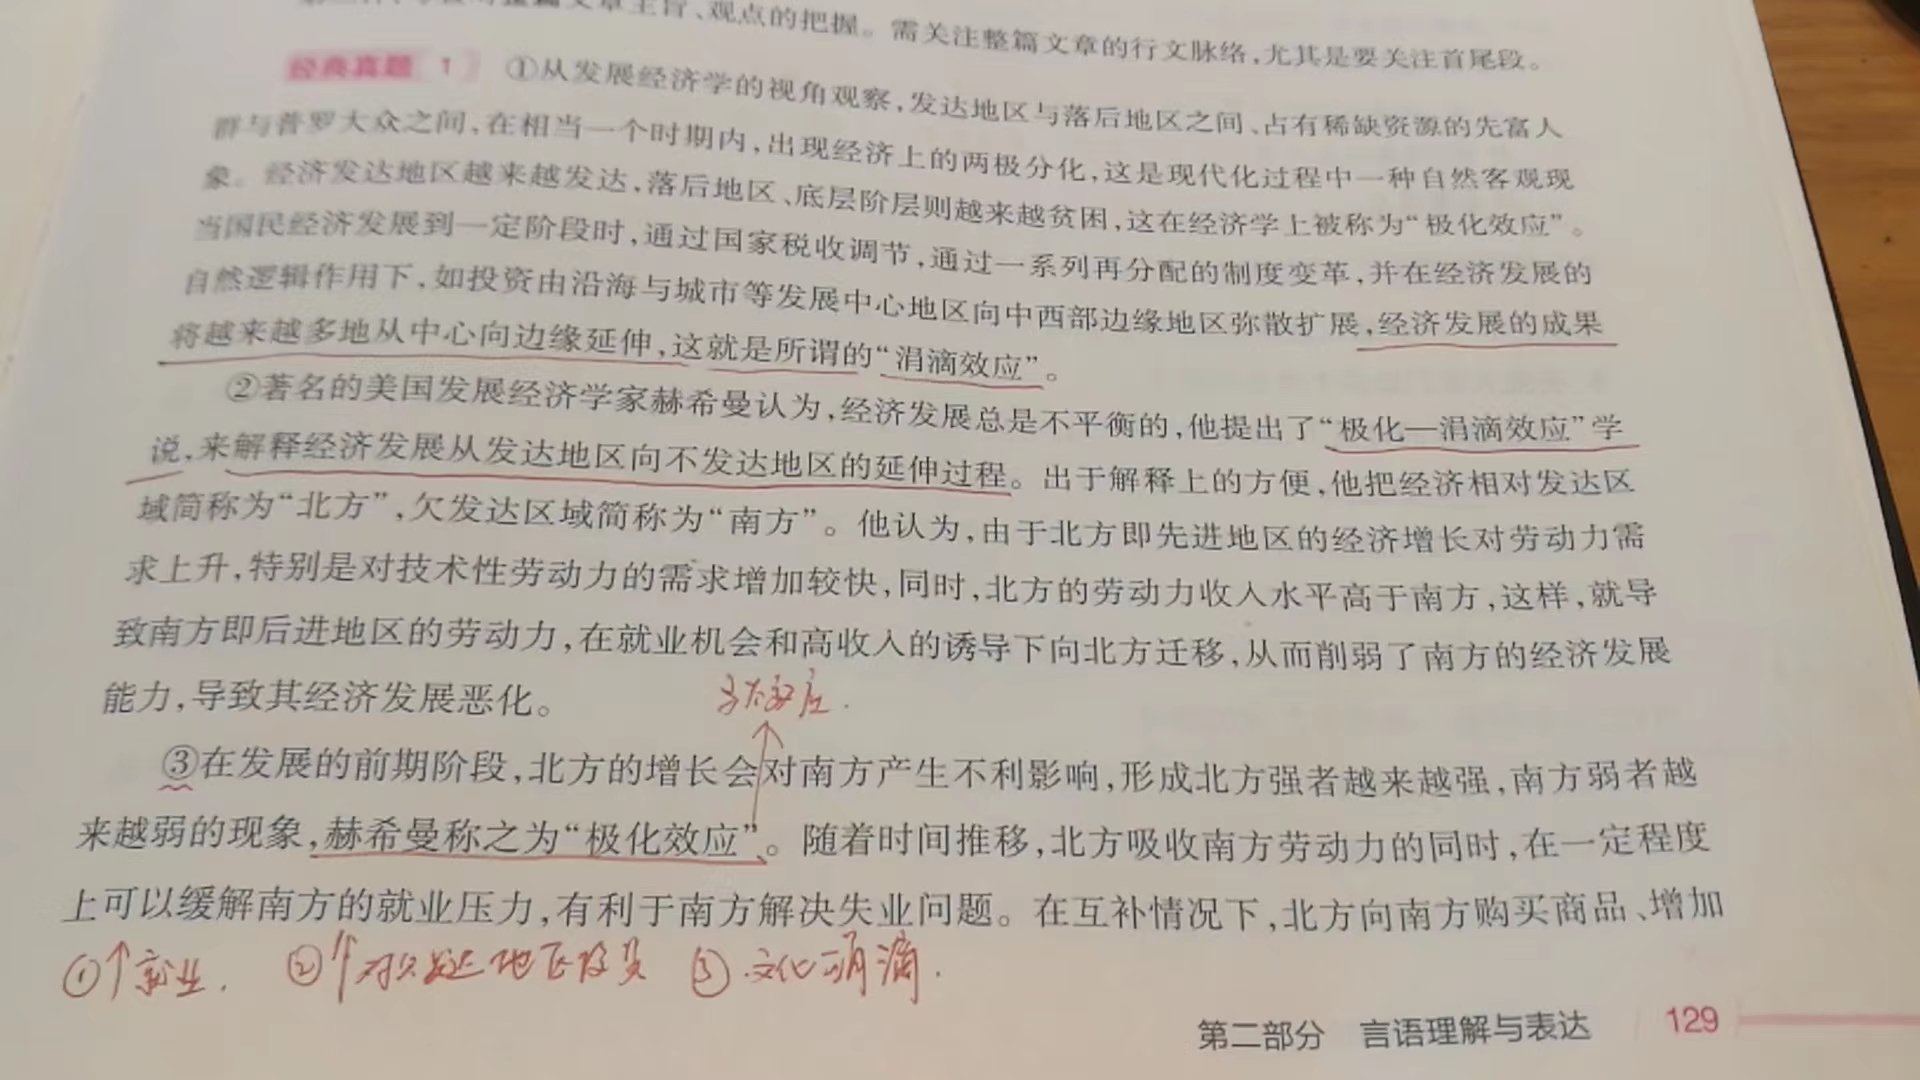 观点的把握。需关注整篇文章的行文脉络,尤其是要关注首尾段。
经典真题 1 ①从发展经济学的视角观察,发达地区与落后地区之间、占有稀缺资源的先富人
群与普罗大众之间,在相当一个时期内,出现经济上的两极分化,这是现代化过程中一种自然客观现
象。经济发达地区越来越发达,落后地区、底层阶层则越来越贫困,这在经济学上被称为“极化效应”。
当国民经济发展到一定阶段时,通过国家税收调节,通过一系列再分配的制度变革,并在经济发展的
自然逻辑作用下,如投资由沿海与城市等发展中心地区向中西部边缘地区弥散扩展,经济发展的成果
将越来越多地从中心向边缘延伸,这就是所谓的“涓滴效应”。
②著名的美国发展经济学家赫希曼认为,经济发展总是不平衡的,他提出了“极化—涓滴效应”学
说,来解释经济发展从发达地区向不发达地区的延伸过程。出于解释上的方便,他把经济相对发达区
域简称为“北方”,欠发达区域简称为“南方”。他认为,由于北方即先进地区的经济增长对劳动力需
求上升,特别是对技术性劳动力的需求增加较快,同时,北方的劳动力收入水平高于南方,这样,就导
致南方即后进地区的劳动力,在就业机会和高收入的诱导下向北方迁移,从而削弱了南方的经济发展
能力,导致其经济发展恶化。
③在发展的前期阶段,北方的增长会对南方产生不利影响,形成北方强者越来越强,南方弱者越
来越弱的现象,赫希曼称之为“极化效应”。随着时间推移,北方吸收南方劳动力的同时,在一定程度
上可以缓解南方的就业压力,有利于南方解决失业问题。在互补情况下,北方向南方购买商品、增加
①↑就业. ②↑对欠发达地区投资 ③文化涓滴.
第二部分 言语理解与表达 129